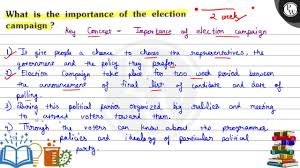 What is the importance of the election campaign?
2 week
Key Concept - Importance of election campaign
1) Is give people a chance to choose the representatives, the
government and the policy they prefer.
2) Election Campaign take place for two week period between
the announcement of final list of candidate and date of
polling.
3) During this political parties organized big rallies and meeting
to attract voters toward them.
4) Through the voters can know about the programmes,
policies and ideology of particular political
party.